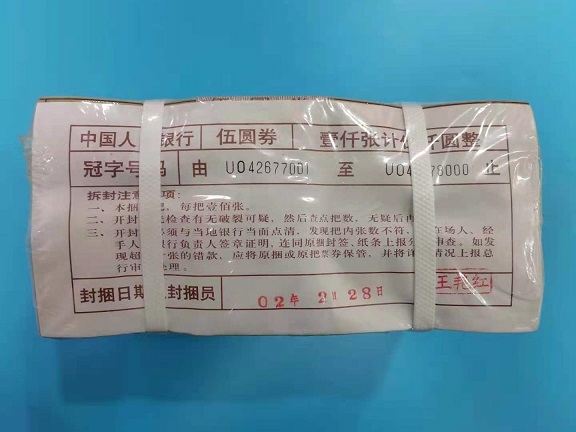 中国人 银行 伍圆券 壹仟张计 仟圆整
冠字号 码 由 U042677001 至 U04 78000 止
拆封注意 项:
一、本捆 , 每把壹佰张。
二、开封 检查有无破裂可疑, 然后查点把数, 无疑后
三、开封 必须与当地银行当面点清, 发现把内张数不符, 在场人、经
手人 银行负责人签章证明, 连同原捆封签, 纸条上报分 审查。如发
现超 张的错款, 应将原捆或原把票券保管, 并将详 情况上报总
行审 处理。
封捆日期 封捆员 02年 2月 28日 王 红